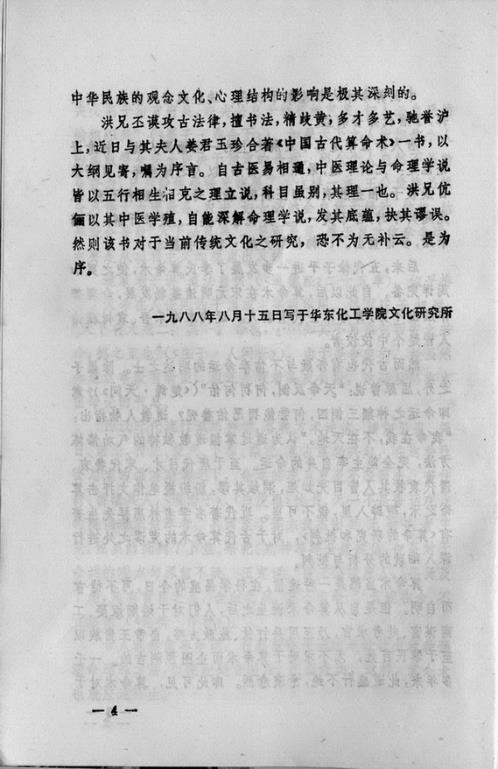 中华民族的观念文化、心理结构的影响是极其深刻的。
洪兄丕谟攻古法律，擅书法，精歧黄，多才多艺，驰誉沪
上，近日与其夫人姜君玉珍合著《中国古代算命术》一书，以
大纲见寄，嘱为序言。自古医易相通，中医理论与命理学说
皆以五行相生相克之理立说，科目虽别，其理一也。洪兄伉
俪以其中医学殖，自能深解命理学说，发其底蕴，抉其谬误。
然则该书对于当前传统文化之研究，恐不为无补云。是为
序。
一九八八年八月十五日写于华东化工学院文化研究所
— 4 —